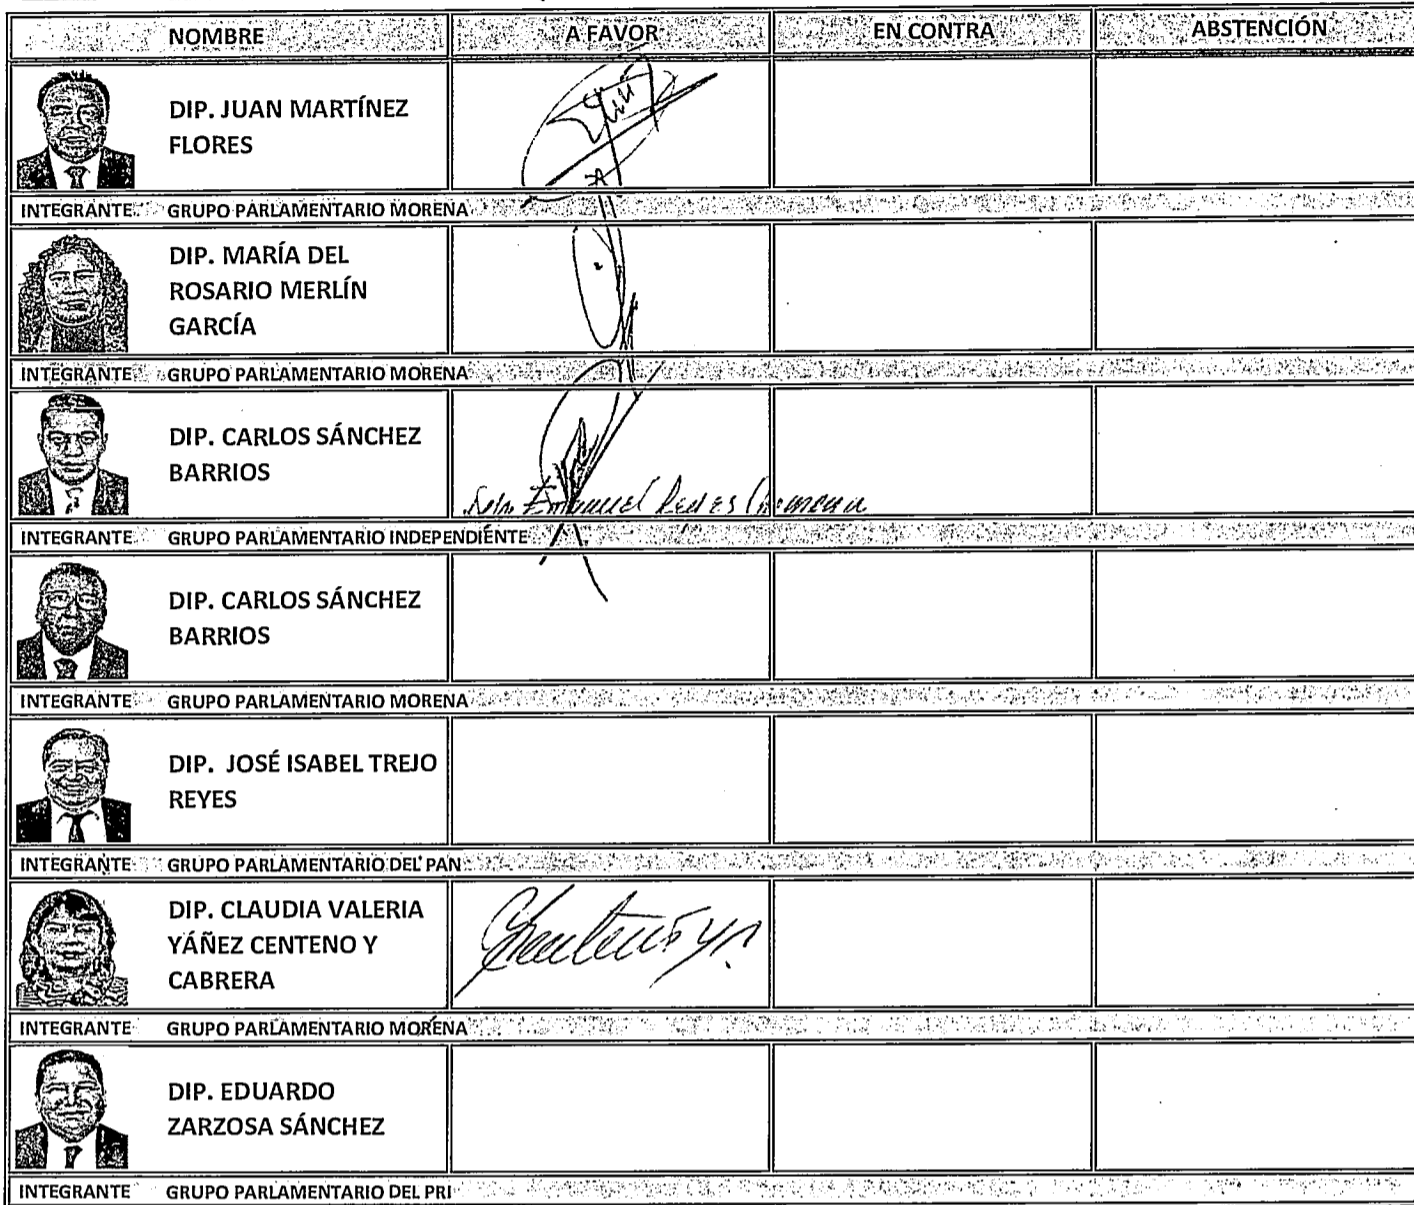 NOMBRE A FAVOR EN CONTRA ABSTENCIÓN
DIP. JUAN MARTÍNEZ
FLORES
INTEGRANTE GRUPO PARLAMENTARIO MORENA
DIP. MARÍA DEL
ROSARIO MERLÍN
GARCÍA
INTEGRANTE GRUPO PARLAMENTARIO MORENA
DIP. CARLOS SÁNCHEZ
BARRIOS
Emanuel Reyes
INTEGRANTE GRUPO PARLAMENTARIO INDEPENDIENTE
DIP. CARLOS SÁNCHEZ
BARRIOS
INTEGRANTE GRUPO PARLAMENTARIO MORENA
DIP. JOSÉ ISABEL TREJO
REYES
INTEGRANTE GRUPO PARLAMENTARIO DEL PAN
DIP. CLAUDIA VALERIA
YÁÑEZ CENTENO Y
CABRERA
INTEGRANTE GRUPO PARLAMENTARIO MORENA
DIP. EDUARDO
ZARZOSA SÁNCHEZ
INTEGRANTE GRUPO PARLAMENTARIO DEL PRI